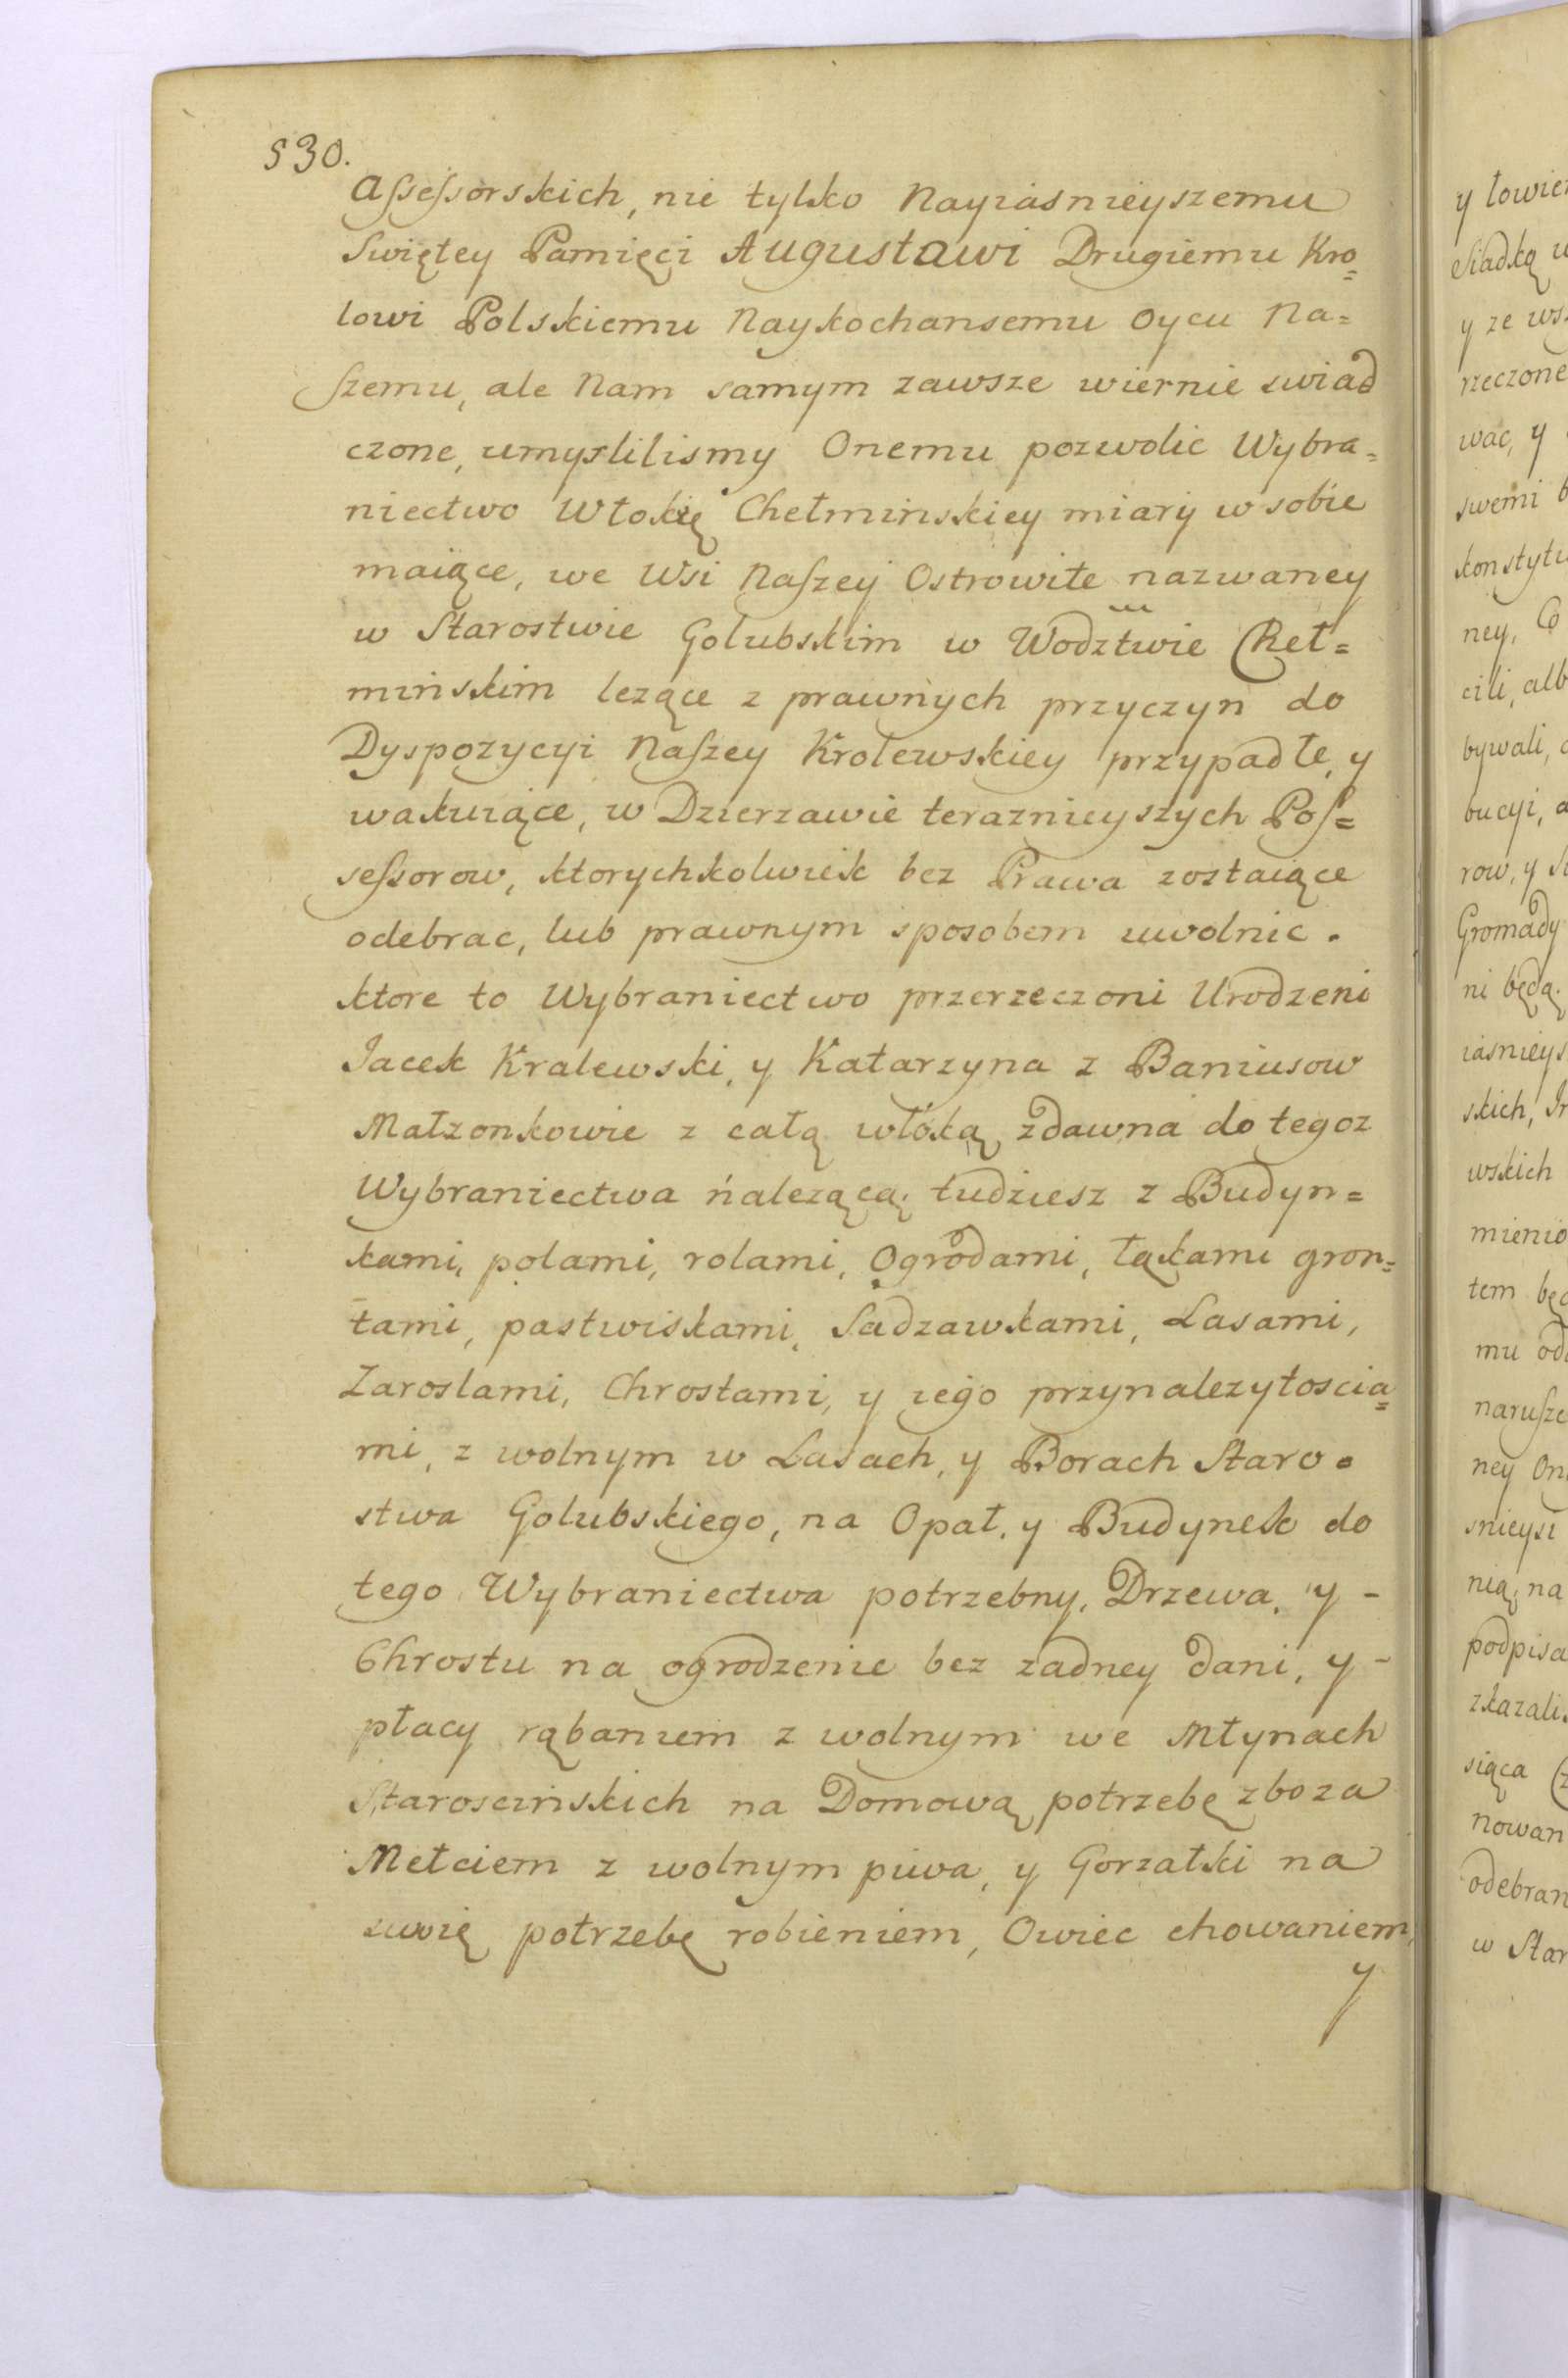 530.
Assessorskich, nie tylko Nayiasnieyszemu
Swiętey Pamięci Augustowi Drugiemu Kro=
lowi Polskiemu Naykochansemu Oycu Na=
szemu, ale Nam samym zawsze wiernie swiad
czone, umyslilismy Onemu pozwolic Wybra=
niectwo Włokię Chełminskiey miary w sobie
maiące, we Wsi Naszey Ostrowite nazwaney
w Starostwie Golubskim w Wodztwie Cheł=
minskim lezące z prawnych przyczyn do
Dyspozycyi Naszey Krolewskiey przypadłe, y
wakuiące, w Dzierzawie teraznieyszych Pos=
sessorow, ktorychkolwiek bez Prawa zostaiące
odebrac, lub prawnym sposobem uwolnic.
ktore to Wybraniectwo przerzeczoni Urodzeni
Jacek Kralewski, y Katarzyna z Baniusow
Małzonkowie z całą włoką zdawna do tegoz
Wybraniectwa nalezącą, tudziesz z Budyn=
kami, polami, rolami, Ogrodami, łąkami gron=
tami, pastwiskami, Sadzawkami, Lasami,
Zaroslami, Chrostami, y iego przynalezytoscia=
mi, z wolnym w Lasach, y Borach Staro=
stwa Golubskiego, na Opał, y Budynek do
tego Wybraniectwa potrzebny, Drzewa, y -
Chrostu na ogrodzenie bez zadney dani, y -
płacy rąbaniem z wolnym we Młynach
Staroscinskich na Domową potrzebę zboza
Mełciem z wolnym piwa, y Gorzałki na
swoię potrzebę robieniem, Owiec chowaniem,
y
y łowie
siadką
y ze ws
rzeczone
wac, y
swemi b
konstytu
ney, Co
cili, alb
bywali,
bucyi, a
row, y
Gromady
ni będą.
iasnieys
skich,
wskich
mienio
tem bę
mu od
narusze
ney On
snieysz
nią, na
podpisa
zkazali
siąca
nowan
odebran
w Star